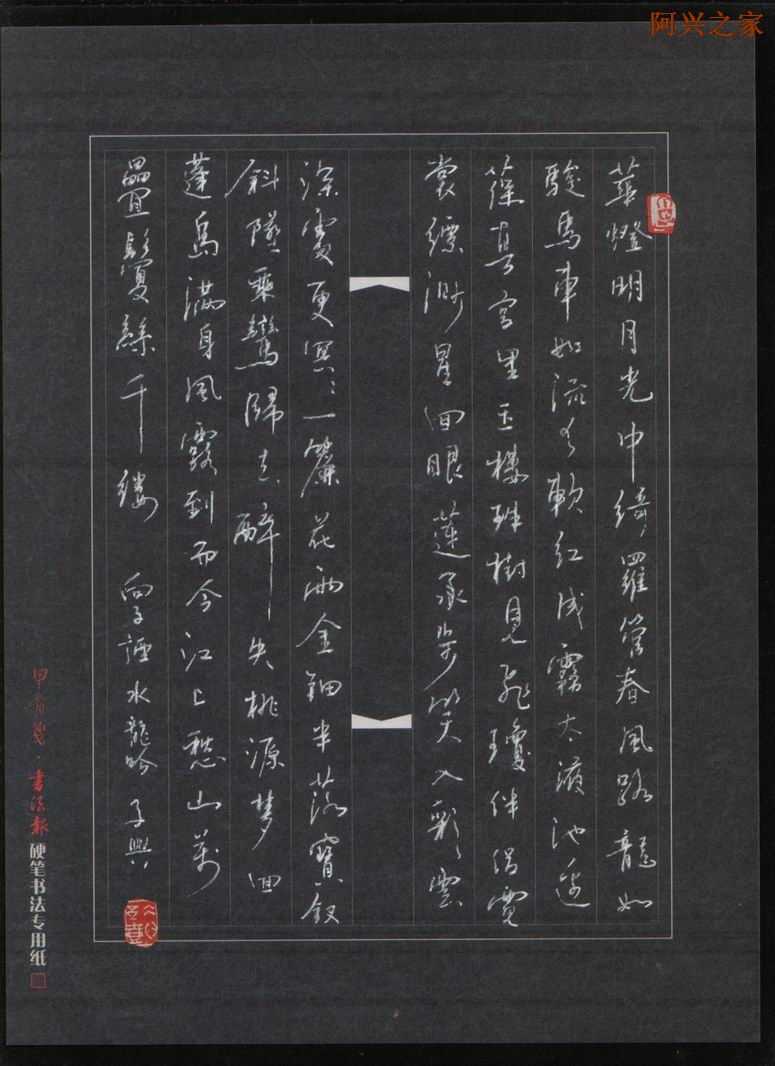 阿兴之家
華燈明月光中綺羅管春風路龍如
駿馬車如流水軟紅成霧太液池邊
葆真宮里玉樓珠樹見飛瓊伴侶霓
裳縹渺星回眼蓮承步笑入彩雲
深處更冥冥一簾花雨金鈿半落寶釵
斜墜乘鸞歸去醉失桃源夢回
蓬島滿身風露到而今江上愁山萬
疊鬢絲千縷 向子諲水龍吟 子興
甲骨箋·書法報
硬笔书法专用纸